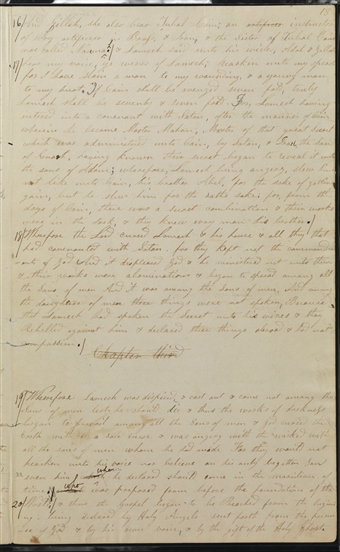 16 And Zillah, she also bear Tubal Cain, an instructor
of every artificer in Brass, & Iron, & the Sister of Tubal Cain
was called Naamah & Lamech said unto his wives, Adah & Zillah
hear my voice, ye wives of Lamech, hearken unto my speech
17 for I have slain a man to my wounding, & a young man
to my hurt. If Cain shall be avenged seven fold, truly
Lamech shall be seventy & seven fold. For, Lamech having
entered into a covenant with Satan, after the manner of Cain
wherein he became Master Mahan, Master of that great secret
which was administered unto Cain, by Satan, & Irad, the son
of Enoch, having known their secret began to reveal it unto
the sons of Adam; wherefore, Lamech being angry, slew him
not like unto Cain, his brother Abel, for the sake of getting
gain, but he slew him for the oaths sake; for, from the
days of Cain, there was a secret combination, & their works
were in the dark, & they knew every man his brother.
18 Wherefore the Lord cursed Lamech & his house & all they that
had covenanted with Satan for they kept not the command
ments of God And it displeased God & he ministered not unto them
& their works were abominations & began to spread among all
the sons of men And it was among the sons of men, And among
the daughters of men these things were not spoken, Because
that Lamech had spoken the Secret unto his wives & they
Rebelled against him & declared these things abroad & had not
compassion.
Chapter third
19 Wherefore Lamech was despised, & cast out & came not among the
sons of men lest he should die & thus the works of darkness
began to prevail among all the Sons of men & God cursed the
Earth with a sore curse & was angry with the wicked with
all the sons of men whom he had made For they would not
hearken unto his voice nor believe on his only begotten Son
even him whom he declared should come in the meridian of
time who was prepared from before the foundation of the
20 World & thus the Gospel began to be Preached from the begin
ning being declared by Holy Angels sent forth from the presen
ce of God & by his own voice, & by the gift of the Holy Ghost